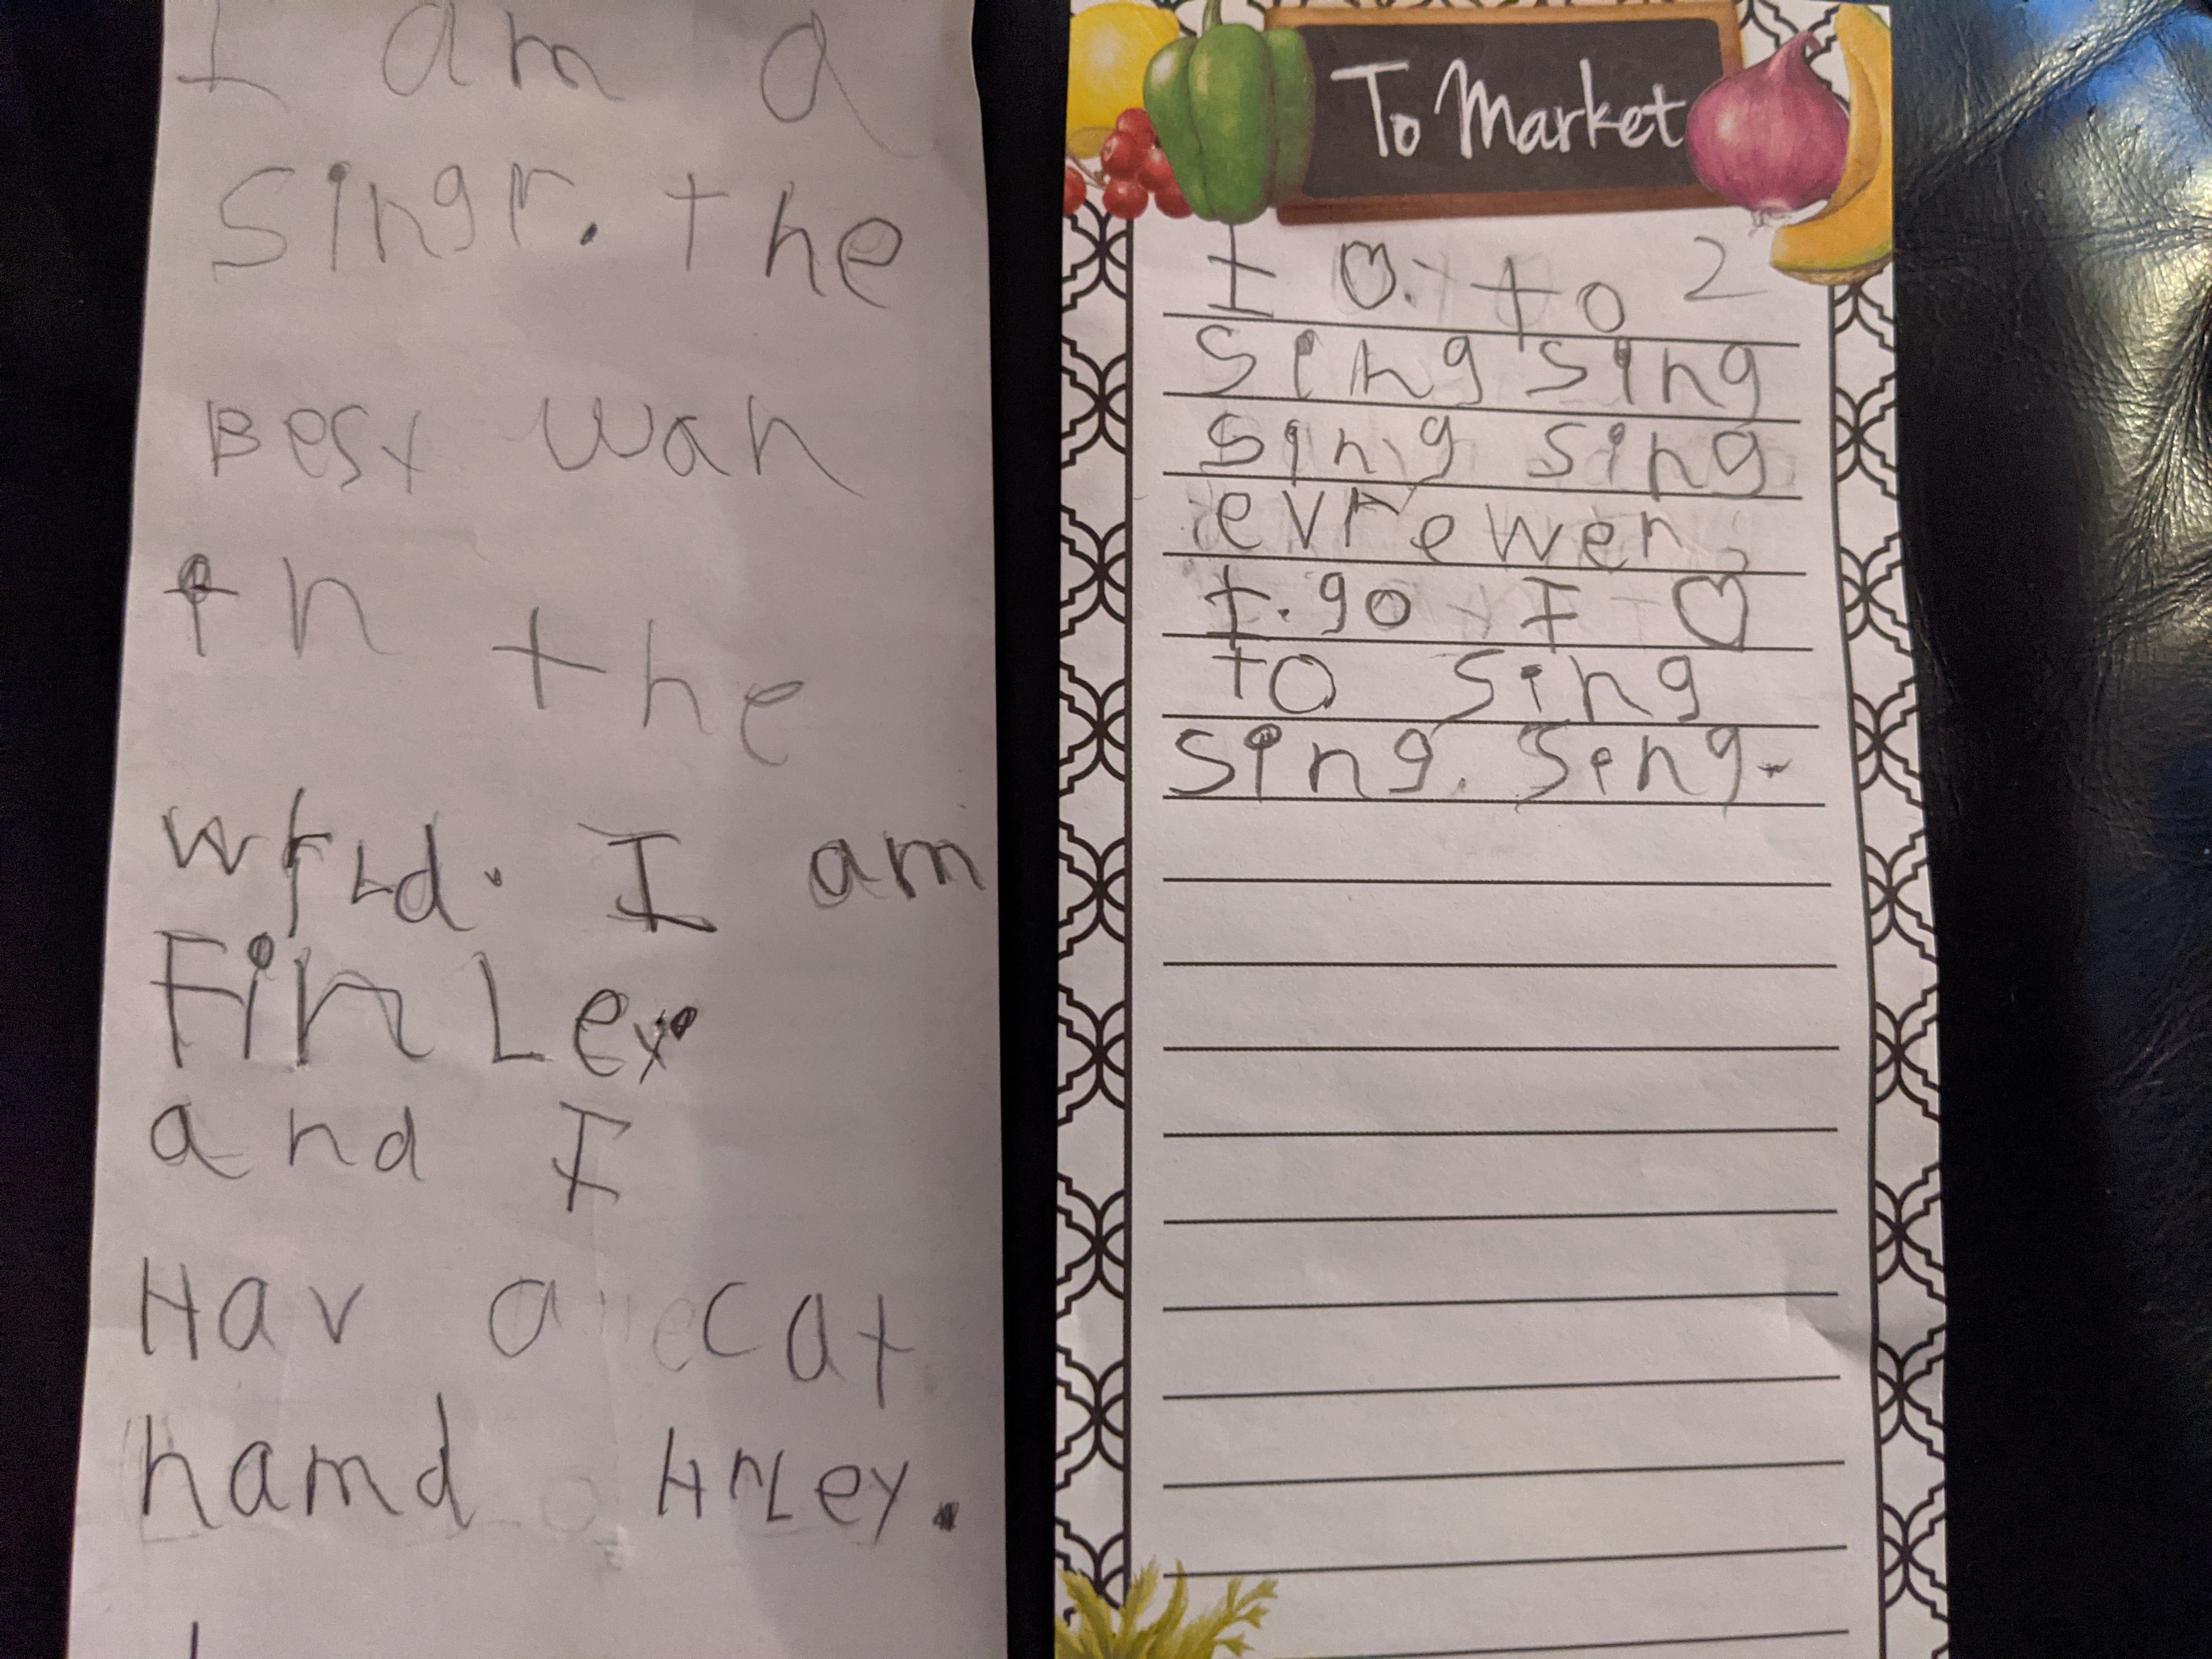 I am a
Singr. the
Best wan
in the
wrld. I am
FinLey
and I
Hav a cat
hamd HrLey.
To Market
I ♡. to 2
Sing Sing
Sing Sing
evrewer
I. go I ♡
to Sing
Sing. Sing.